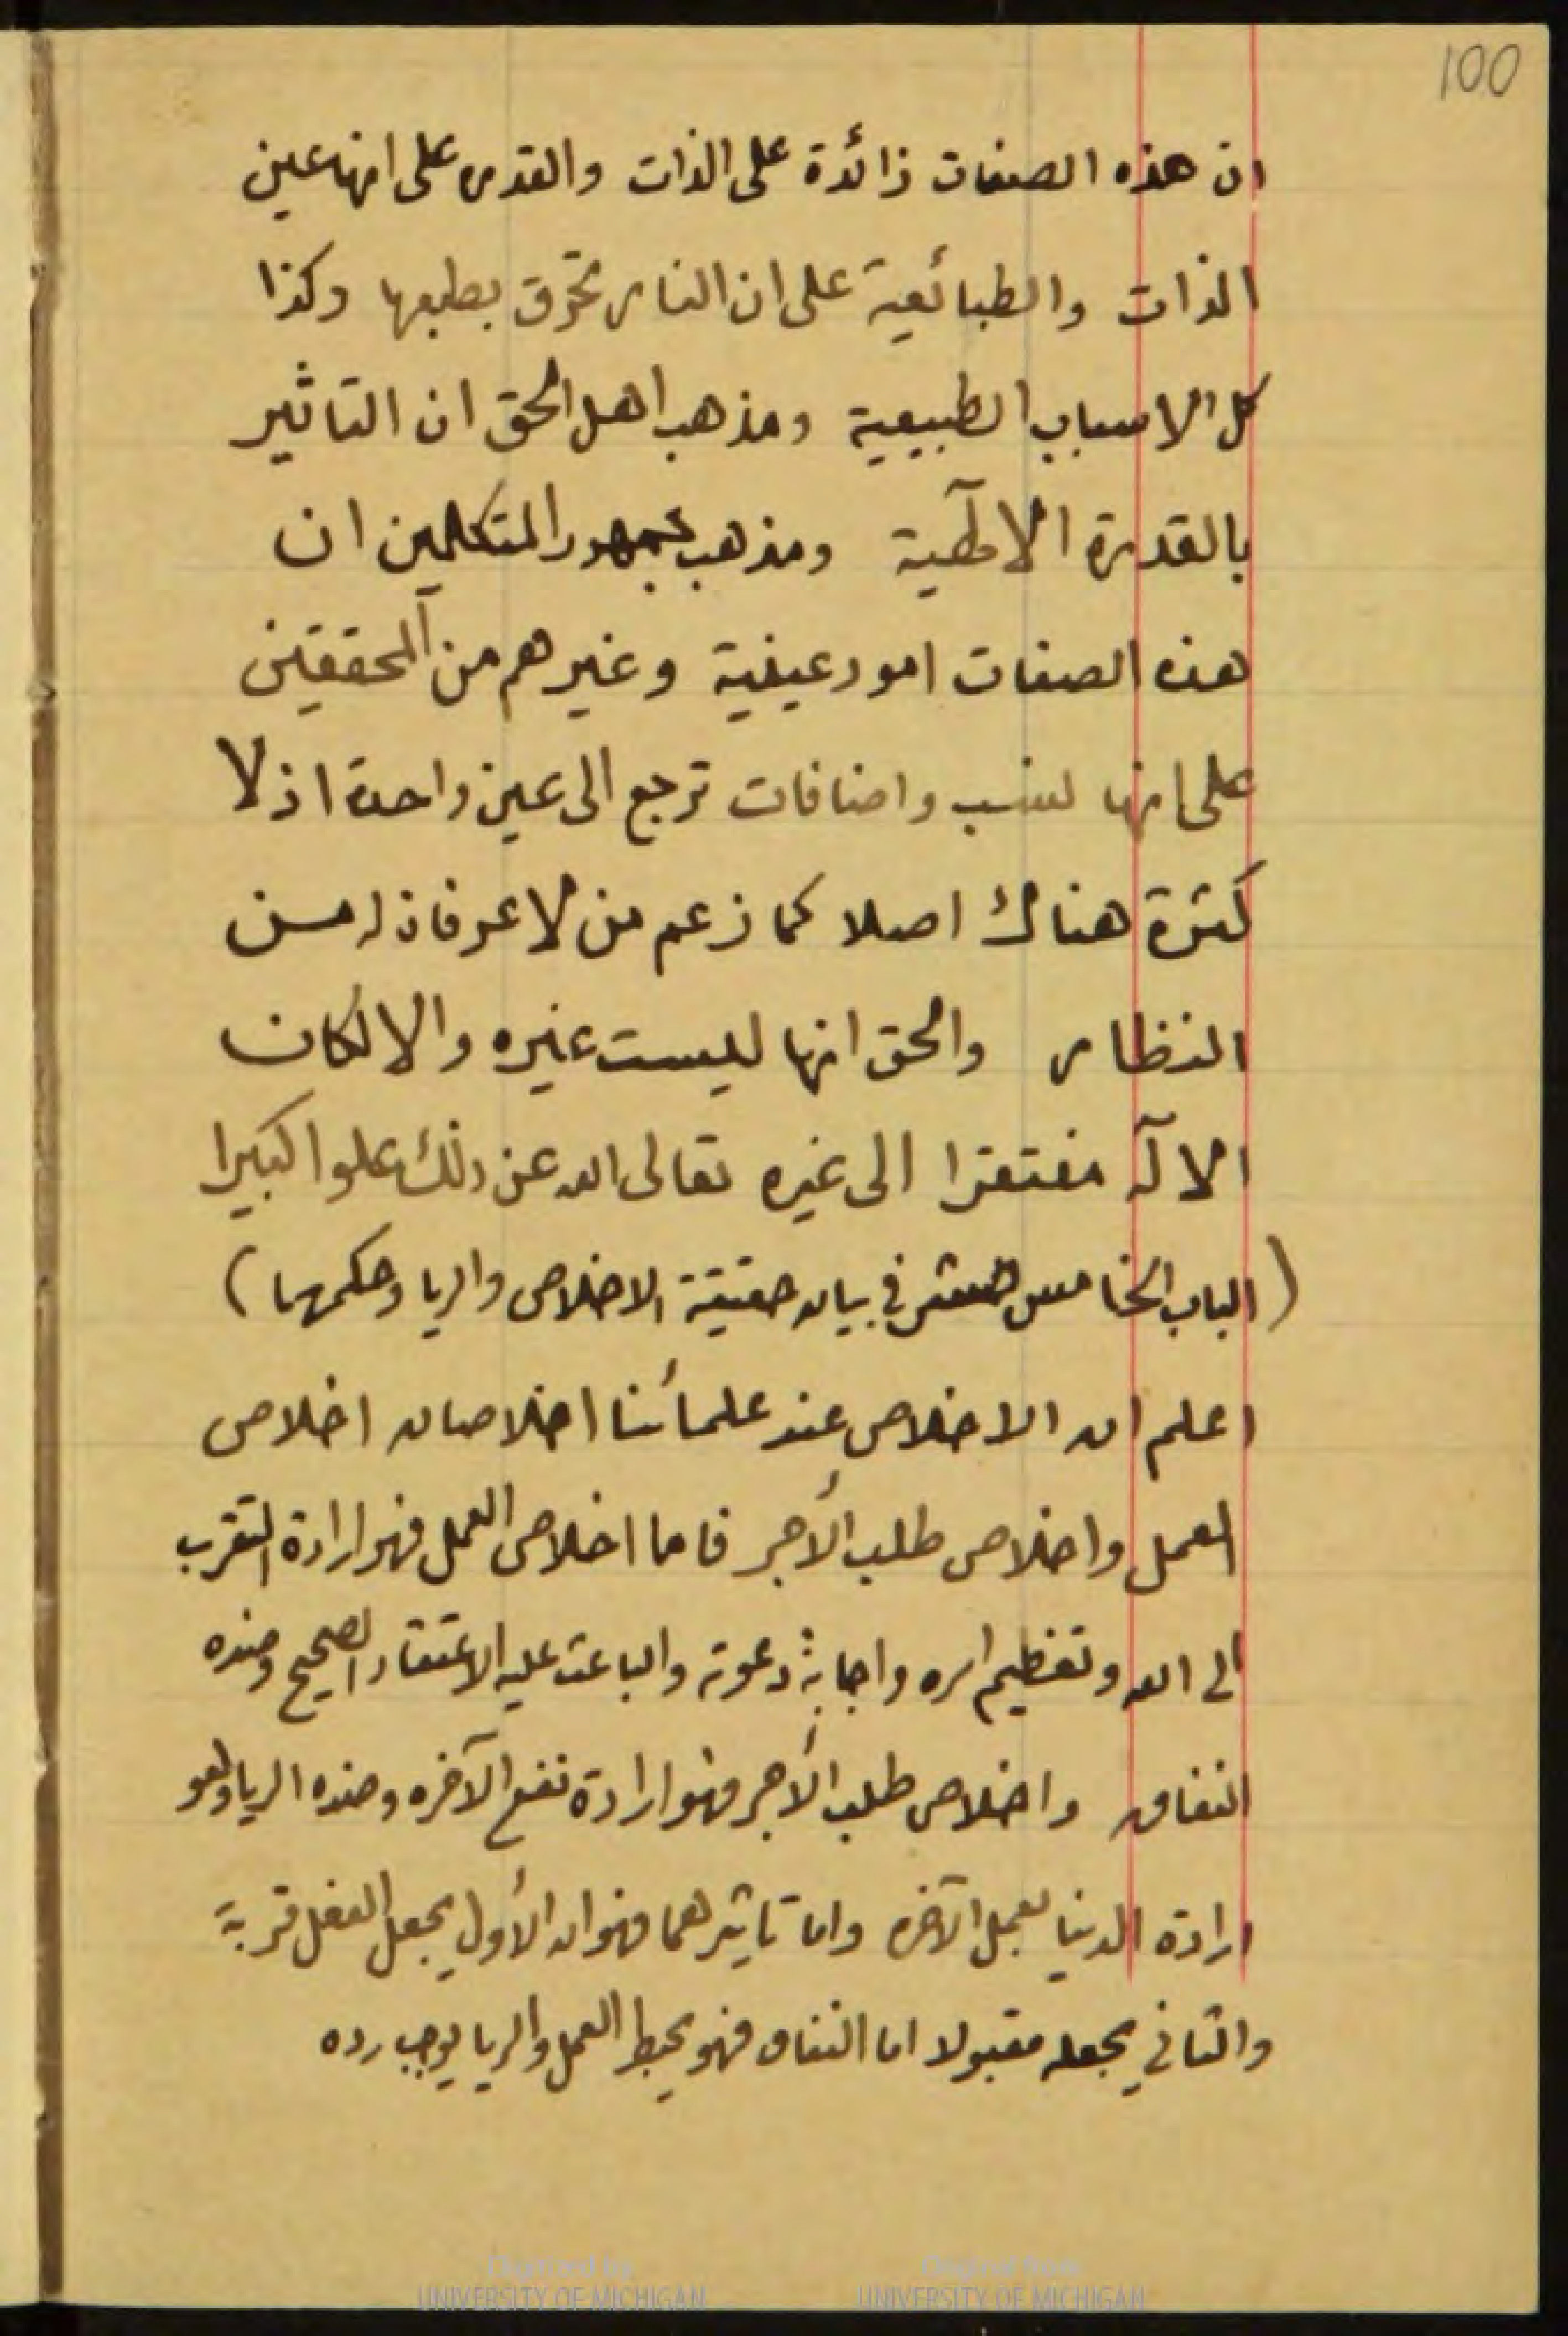 100
ان هذه الصفات زائدة على الذات والقدر على انها عين
الذات والطبائعية على ان النار تحرق بطبعها وكذا
كل الاسباب الطبيعية ومذهب اهل الحق ان التاثير
بالقدرة الالآهية ومذهب جمهور المتكلمين ان
هذه الصفات امور عينية وغيرهم من المحققين
على انها نسب واضافات ترجع الى عين واحدة اذ لا
كثرة هناك اصلا كما زعم من لا عرفان له من
النظار والحق انها ليست غيره والا لكان
الالآه مفتقرا الى غيره تعالى الله عن ذلك علوا كبيرا
(الباب الخامس عشر في بيان حقيقة الاخلاص والريا وحكمهما)
اعلم ان الاخلاص عند علمائنا اخلاصان اخلاص
العمل واخلاص طلب الأجر فاما اخلاص العمل فهو ارادة التقرب
الى الله وتعظيم امره واجابة دعوته والباعث عليه الاعتقاد الصحيح وضده
النفاق واخلاص طلب الأجر فهو ارادة نفع الآخره وضده الريا وهو
ارادة الدنيا بعمل الآخره واما تاثيرهما فهو ان الأول يجعل الفعل قربة
والثاني يجعله مقبولا اما النفاق فهو يحبط العمل والريا يوجب رده
Digitized by
UNIVERSITY OF MICHIGAN
Original from
UNIVERSITY OF MICHIGAN